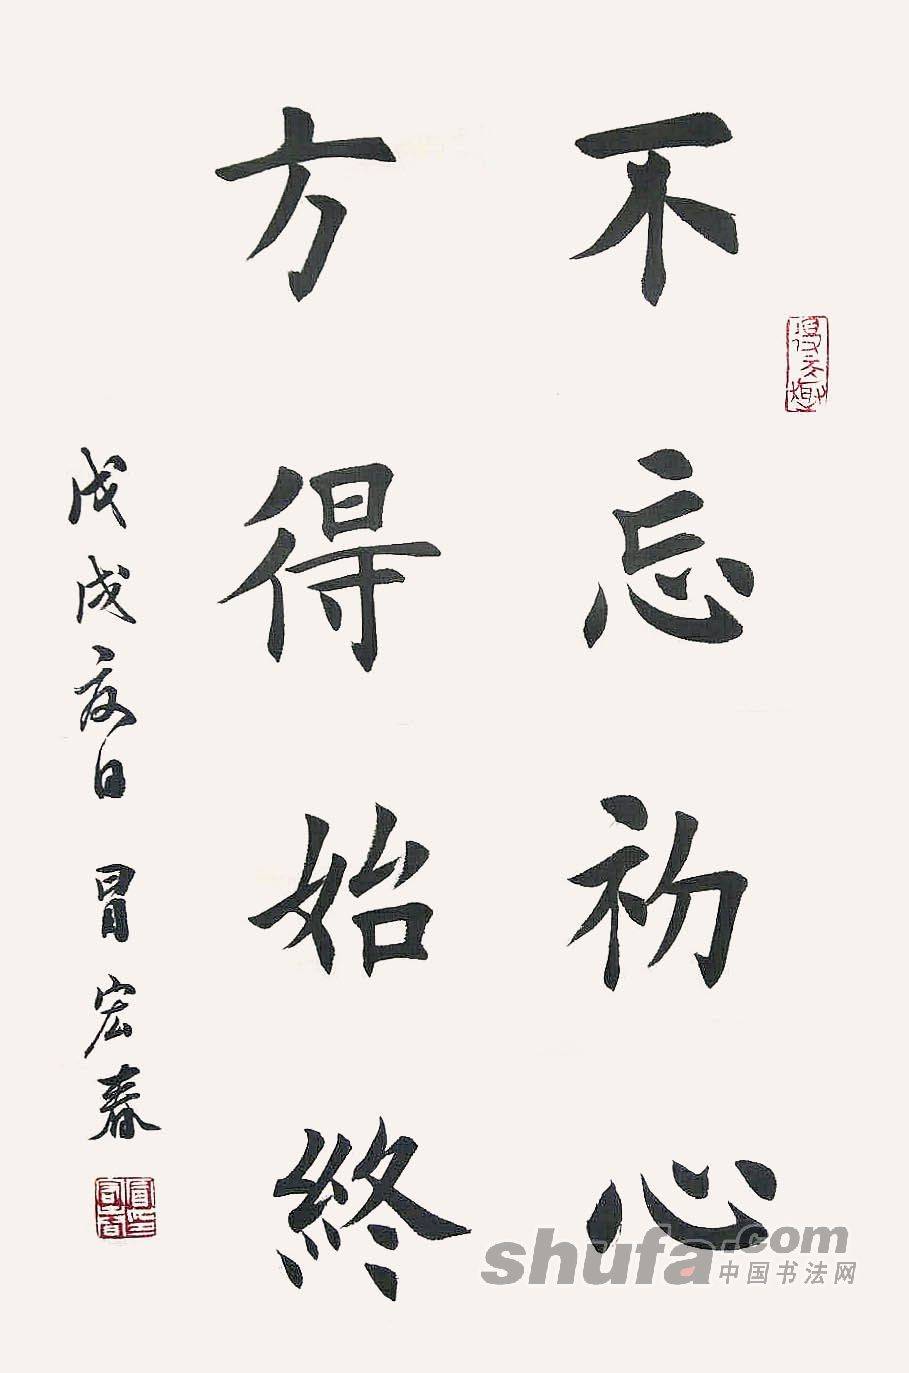 不忘初心
方得始終
戊戌夏日 冒宏春
shufa.com
中国书法网